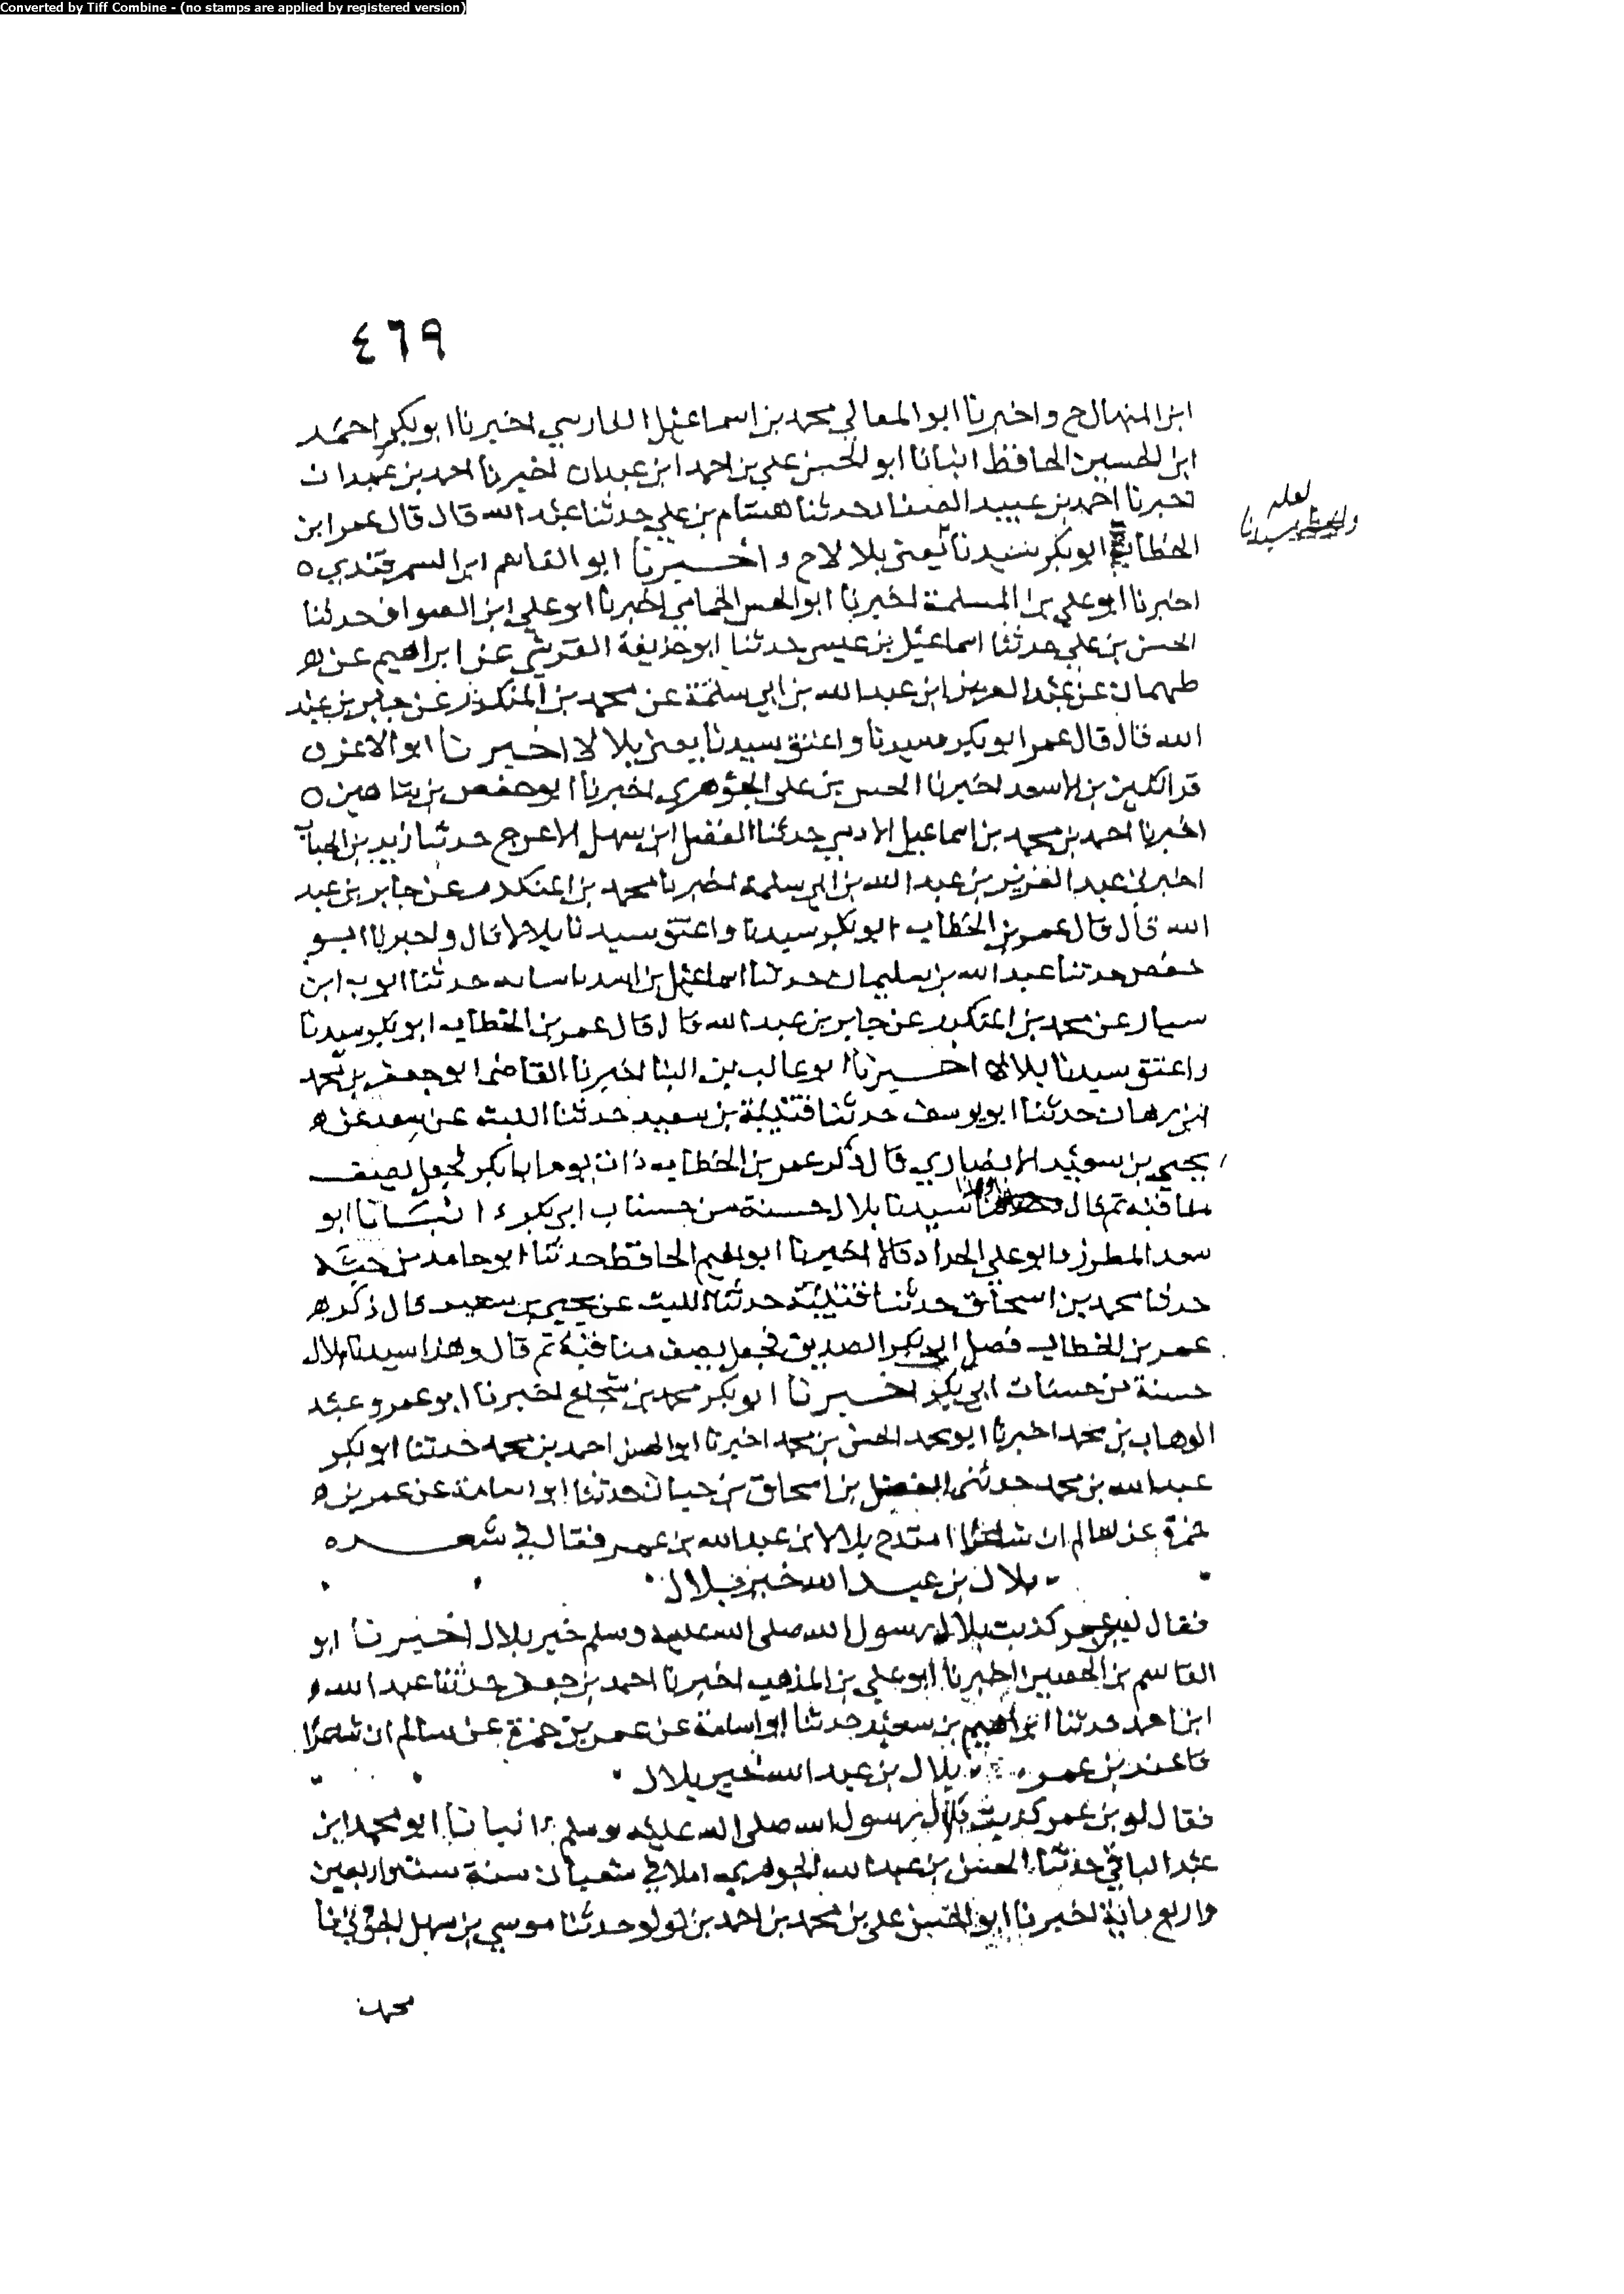 Converted by Tiff Combine - (no stamps are applied by registered version)
٤٦٩
ابن المنهال ح واخبرنا ابو المعالي محمد بن اسماعيل الفارسي اخبرنا ابو بكر احمد
ابن الحسين الحافظ انبانا ابو الحسن علي بن احمد ابن عبدان اخبرنا احمد بن عبدان
اخبرنا احمد بن عبيد الصفار حدثنا هشام بن علي حدثنا عبد الله قال قال عمر ابن
الخطاب ابو بكر سيدنا يعني بلالا ح واخبرنا ابو القاسم ابن السمرقندي ه
لعله
سيدنا
اخبرنا ابو علي بن المسلمة اخبرنا ابو الحسن الحمامي اخبرنا ابو علي ابن الصواف حدثنا
الحسن بن علي حدثنا اسماعيل بن عيسى حدثنا ابو حذيفة القرشي عن ابراهيم عن ه
طهمان عن عبد العزيز ابن عبد الله بن ابي سلمة عن محمد بن المنكدر عن جابر بن عبد
الله قال قال عمر ابو بكر سيدنا واعتق سيدنا يعني بلالا اخبرنا ابو الاعز ه
قراتكين بن الاسعد اخبرنا الحسن بن علي الجوهري اخبرنا ابو حفص بن شاهين ه
اخبرنا احمد بن محمد بن اسماعيل الادمي حدثنا الفضل ابن سهل الاعرج حدثنا زيد بن الحباب
اخبرني عبد العزيز بن عبد الله بن ابي سلمة اخبرنا محمد بن المنكدر عن جابر بن عبد
الله قال قال عمر بن الخطاب ابو بكر سيدنا واعتق سيدنا بلالا قال واخبرنا ابو
حفص حدثنا عبد الله بن سليمان حدثنا اسماعيل بن اسد شبابه حدثنا ايوب ابن
سيار عن محمد بن المنكدر عن جابر بن عبد الله قال قال عمر بن الخطاب ابو بكر سيدنا
واعتق سيدنا بلالا اخبرنا ابو غالب بن البنا اخبرنا القاضي ابو جعفر بن محمد
ابن برهان حدثنا ابو يوسف حدثنا قتيبة بن سعيد حدثنا الليث عن سعد عن ه
يحيى بن سعيد الانصاري قال ذكر عمر بن الخطاب ذات يوم ابا بكر فجعل يصف
مناقبه ثم قال وهذا سيدنا بلال حسنة من حسنات ابي بكر انبانا ابو
سعد المطرز وابو علي الحداد قالا اخبرنا ابو نعيم الحافظ حدثنا ابو حامد بن جبلة
حدثنا محمد بن اسحاق حدثنا قتيبة حدثنا الليث عن يحيى بن سعيد قال ذكر ه
عمر بن الخطاب فضل ابي بكر الصديق فجعل يصف مناقبه ثم قال وهذا سيدنا بلال
حسنة من حسنات ابي بكر اخبرنا ابو بكر محمد بن شجاع اخبرنا ابو عمرو عبد
الوهاب بن محمد اخبرنا ابو محمد الحسن بن محمد اخبرنا ابو الحسن احمد بن محمد حدثنا ابو بكر
عبد الله بن محمد حدثني الفضل بن اسحاق بن حيان حدثنا ابو اسامة عن عمر بن ه
حمزة عن سالم ان شاعرا امتدح بلال بن عبد الله بن عمر فقال في شعره
بلال بن عبد الله خير بلال
فقال ابن عمر كذبت بلال رسول الله صلى الله عليه وسلم خير بلال اخبرنا ابو
القاسم بن الحصين اخبرنا ابو علي بن المذهب اخبرنا احمد بن جعفر حدثنا عبد الله
ابن احمد حدثنا ابراهيم بن سعيد حدثنا ابو اسامة عن عمر بن حمزة عن سالم ان شاعرا
قال عند بن عمر بلال بن عبد الله خير بلال
فقال له بن عمر كذبت بلال رسول الله صلى الله عليه وسلم انبانا ابو محمد ابن
عبد الباقي حدثنا الحسن بن عبد الله الجوهري املا في شعبان سنة ست واربعين
واربع مائة اخبرنا ابو الحسن علي بن محمد بن احمد بن لولو حدثنا موسى بن سهل الجوني نا
محمد بن